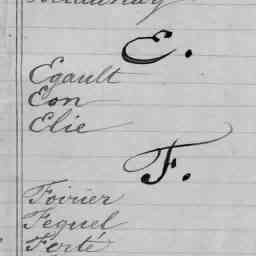 E.
Egault
Eon
Elie
F.
Foirier
Fequel
Ferté